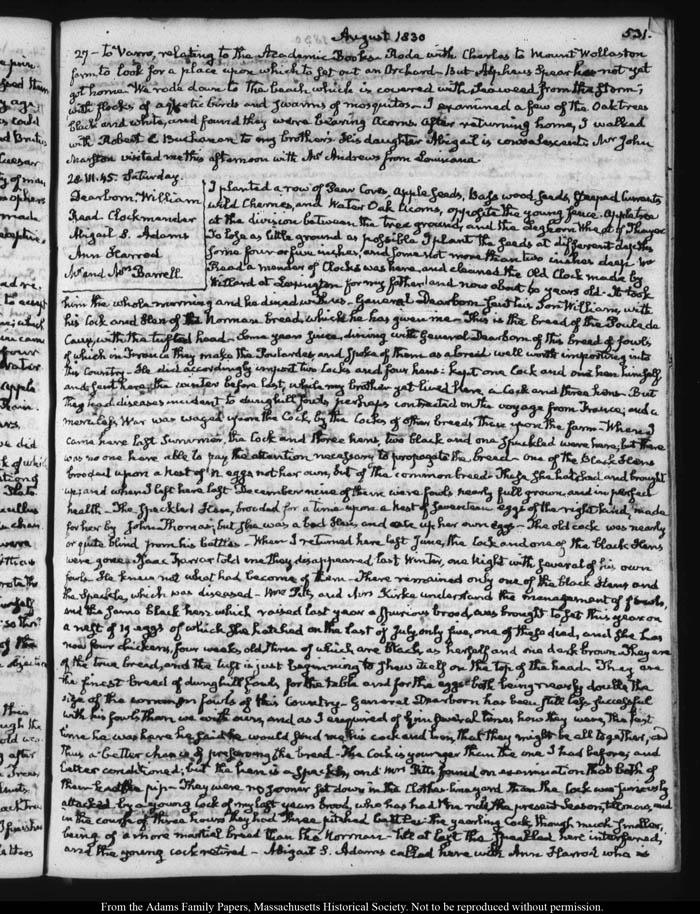 August 1830
531.
27 - to Varro, relating to the Academic Books. Rode with Charles to Mount Wollaston
farm to look for a place upon which to set out an Orchard - But Alpheus Spear has not yet
got home. We rode down to the beach which is covered with Seaweed from the Storm;
with flocks of aquatic birds and swarms of mosquitos - I examined a few of the Oak trees
black and white, and found they were bearing Acorns. After returning home, I walked
with Robert C. Buchanan to my brother's. His daughter Abigail is convalescent. Mr John
Marston visited me this afternoon with Mr Andrews from Louisiana.
28. VI. 45. Saturday.
Dearborn. William
Read. Clockmender
Abigail S. Adams
Ann Harrod
Mr and Mrs Barrell.
I planted a row of Pear Cores, Apple seeds, Bass wood seeds,
wild Cherries, and Water Oak Acorns, opposite the young fence. Appletree
at the division between the tree ground, and the
To lose as little ground as possible I plant the seeds at different depths
some four or five inches, and some not more than two inches deep. Mr
Read a mender of Clocks was here, and cleaned the Old Clock made by
Willard at Lexington for my father and now about 50 years old. It took
him the whole morning and he dined with us. General Dearborn sent his Son William, with
his Cock and Hen of the Norman breed, which he has given me - This is the breed of the Poule de
Caux, with the tufted head - Some years since, dining with General Dearborn of this breed of fowls
of which in France they make the Poulardes, and spoke of them as a breed well worth importing into
this Country - He did accordingly import two Cocks and four hens: kept one Cock and one hen himself
and sent here, the winter before last, while my brother yet lived here, a Cock and three hens - But
they had diseases incident to dunghill fowls perhaps contracted on the voyage from France; and a
merciless War was waged upon the Cock, by the Cocks of other breeds then upon the farm - When I
came here last Summer, the Cock and three hens, two black and one Speckled were here, but there
was no one here able to pay the attention necessary to propagate the breed - one of the Black Hens
brooded upon a nest of eggs not her own, but of the common breed. These She hatched and brought
up; and when I left here last December nine of them were fowls nearly full grown, and in perfect
health - The Speckled Hen, brooded for a time upon a nest of Seventeen eggs of the right kind, made
for her by John Thomas; but She was a bad Hen, and eat up her own eggs - The old cock was nearly
or quite blind from his battles - When I returned here last June, the Cock and one of the black Hens
were gone. Isaac Farrar told me they disappeared last Winter, one night with several of his own
fowls. He knew not what had become of them - There remained only one of the Black Hens and
the Speckle, which was diseased - Mrs Fitts and Mrs Kirke understand the management of fowls,
and the same Black hen which raised last year a spurious brood, was brought to set this year on
a nest of 19 eggs of which She hatched on the last of July only five, one of these died, and She has
now four chickens, four weeks old, three of which are black, as herself and one dark brown. They are
of the true breed, and the tuft is just beginning to shew itself on the top of the head. They are
the finest breed of dunghill fowls, for the table and for the eggs both being nearly double the
size of the common fowls of this Country - General Dearborn has been full less successful
with his fowls than we with ours, and as I enquired of him several times how they were, the last
time he was here he said he would send me his cock and hen, that they might be all together, and
thus a better chance of preserving the breed - The Cock is younger than the one I had before; and
better conditioned; but the hen is a Speckle, and Mrs Fitts found on examination that both of
them had the pip - They were no sooner set down in the Clothes-line yard than the Cock was furiously
attacked by a young Cock of my last years brood, who has had the rule the present Season, and
in the course of three hours they had three pitched battles; the yearling Cock, though much smaller,
being of a more martial breed than the Norman - till at last the Speckled hen interfered,
and the young cock retired - Abigail S. Adams called here with Ann Harrod who
From the Adams Family Papers, Massachusetts Historical Society. Not to be reproduced without permission.